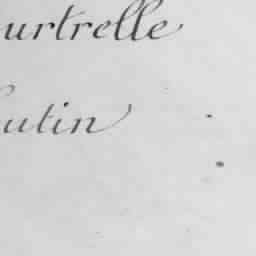 urtrelle
utin